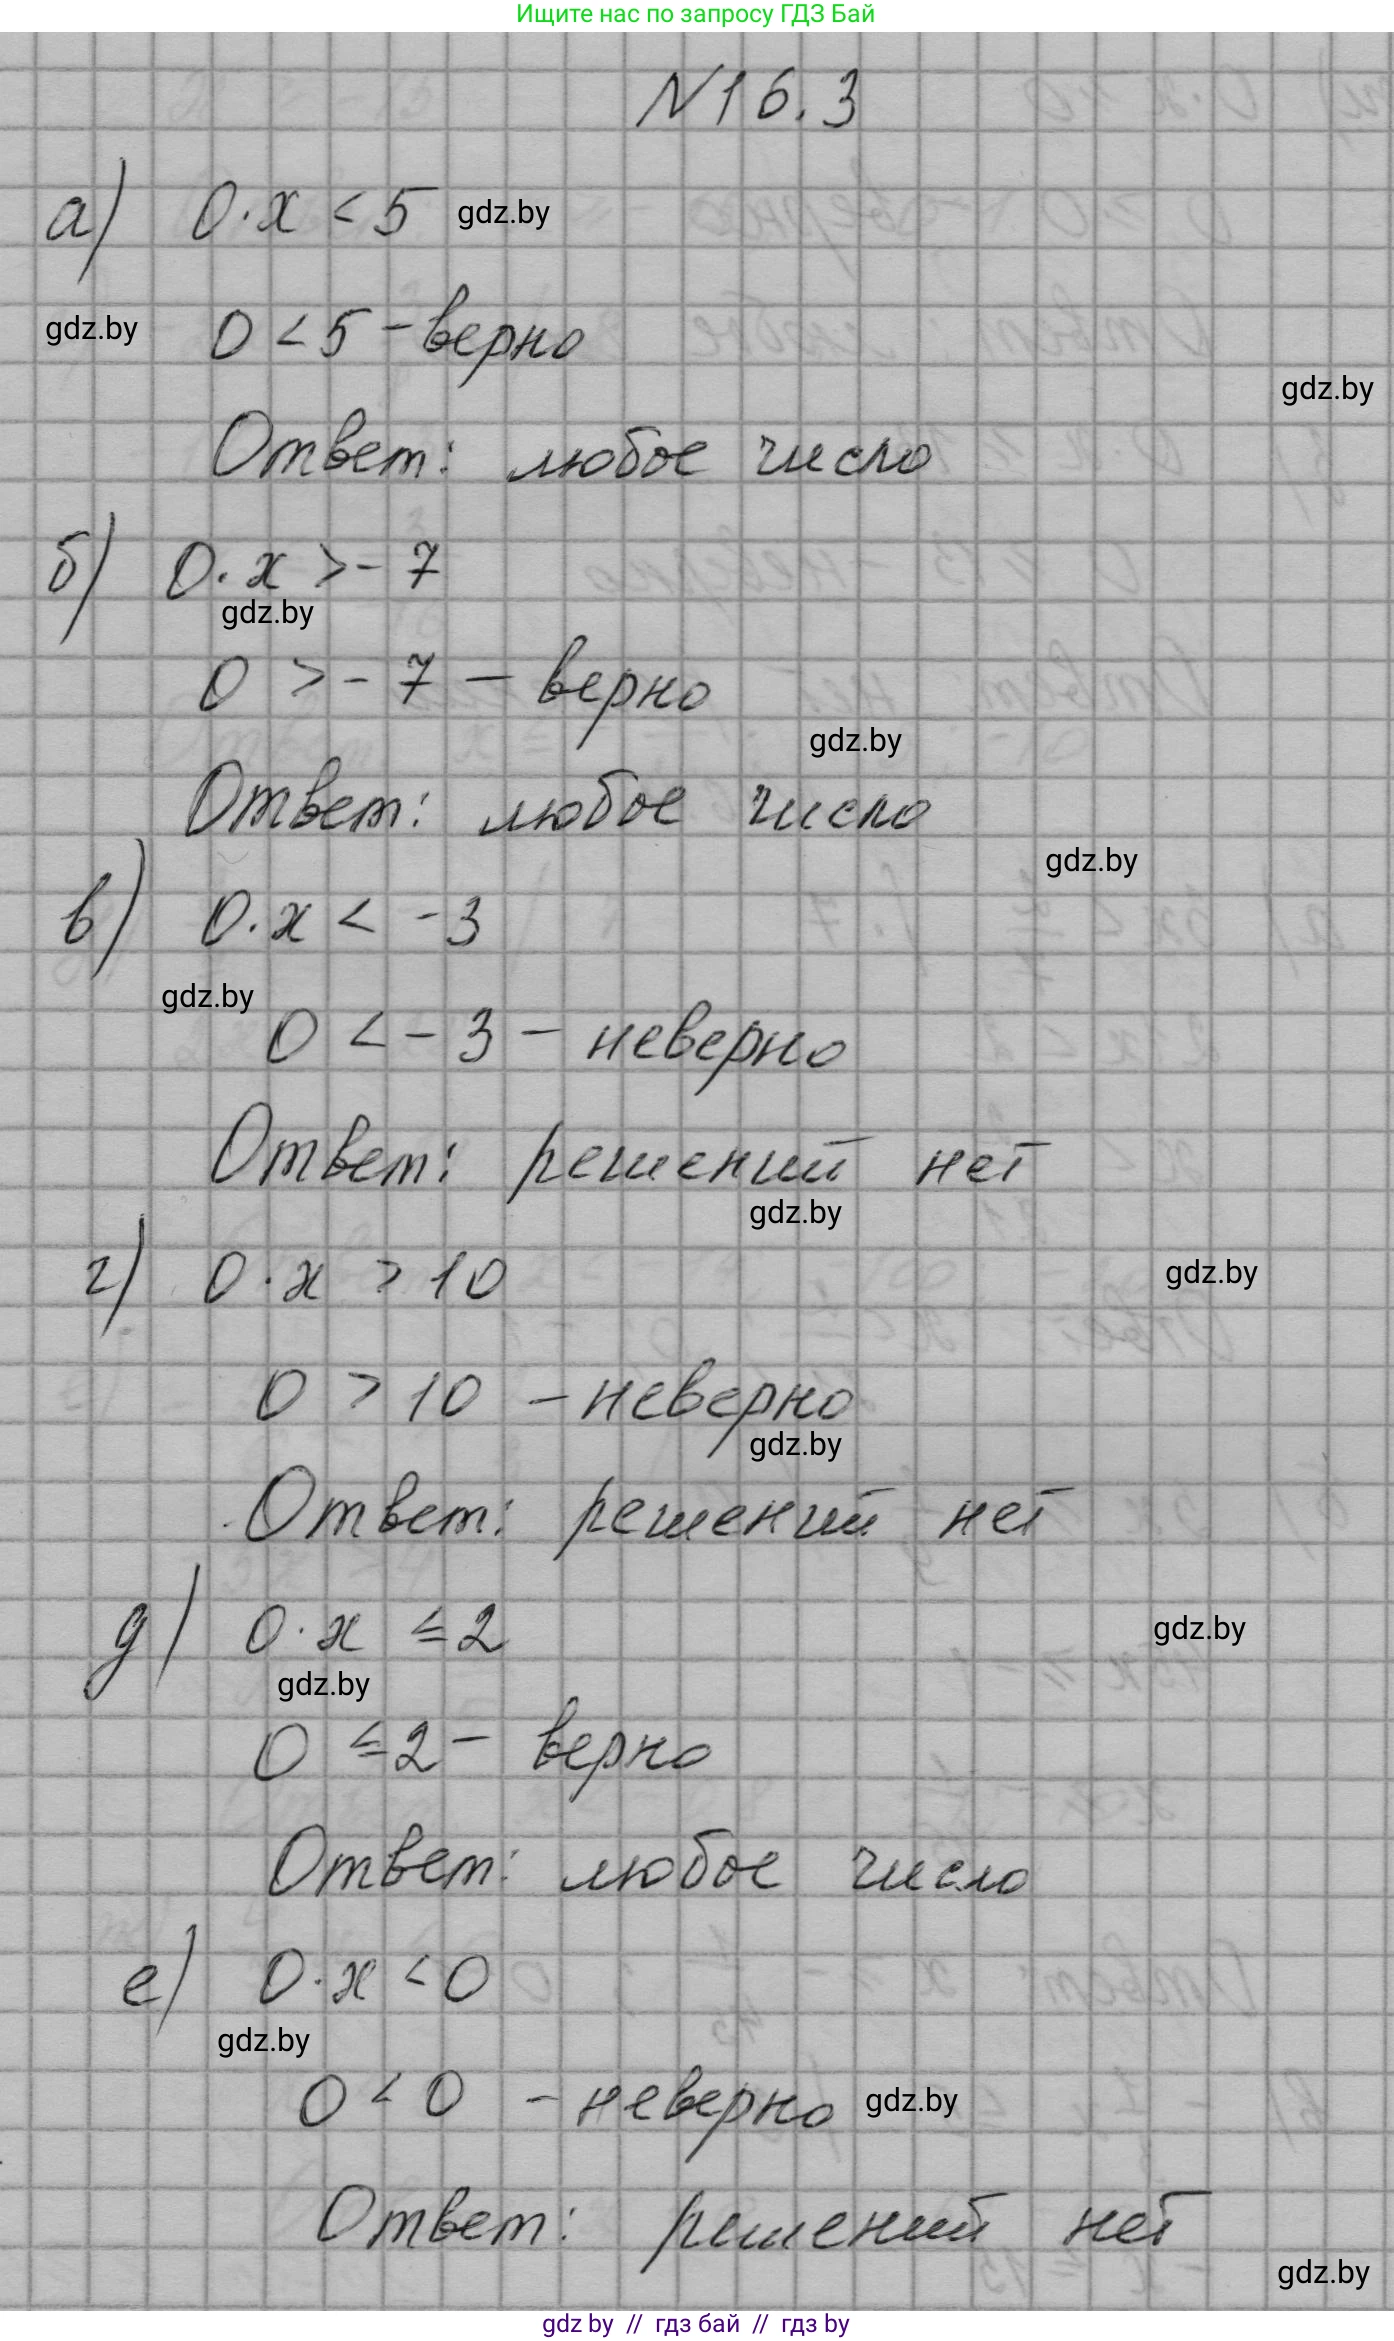 Ищите нас по запросу ГДЗ Бай
N16.3
а) 0·x < 5 gdz.by
gdz.by 0 < 5 - верно
gdz.by
Ответ: любое число
б) 0·x > - 7
gdz.by
0 > - 7 - верно
gdz.by
Ответ: любое число
gdz.by
в) 0·x < -3
gdz.by
0 < - 3 - неверно
Ответ: решений нет
gdz.by
г) 0·x > 10 gdz.by
0 > 10 - неверно
gdz.by
Ответ: решений нет
д) 0·x ≤ 2 gdz.by
gdz.by
0 ≤ 2 - верно
Ответ: любое число
е) 0·x < 0
gdz.by
0 < 0 - неверно gdz.by
Ответ: решений нет
gdz.by
gdz by // гдз бай // гдз by